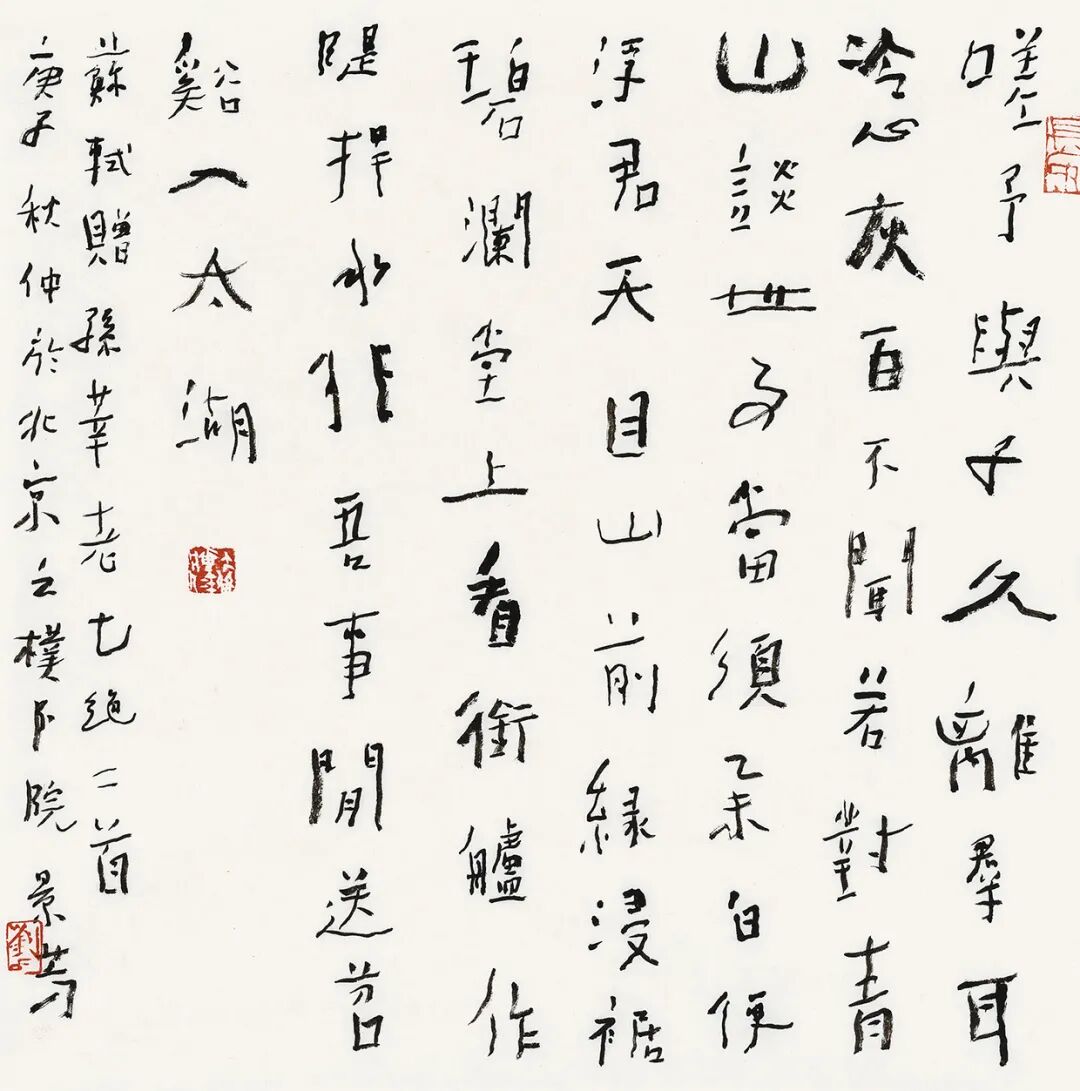 嗟予與子久離羣耳
冷心灰百不聞若對青
山談世事當須舉白便
浮君天目山前綠浸裾
碧瀾堂上看銜艫作
隄捍水非吾事閒送苕
谿入太湖
蘇軾贈孫莘老七絕二首
庚子秋仲於北京之樸院景